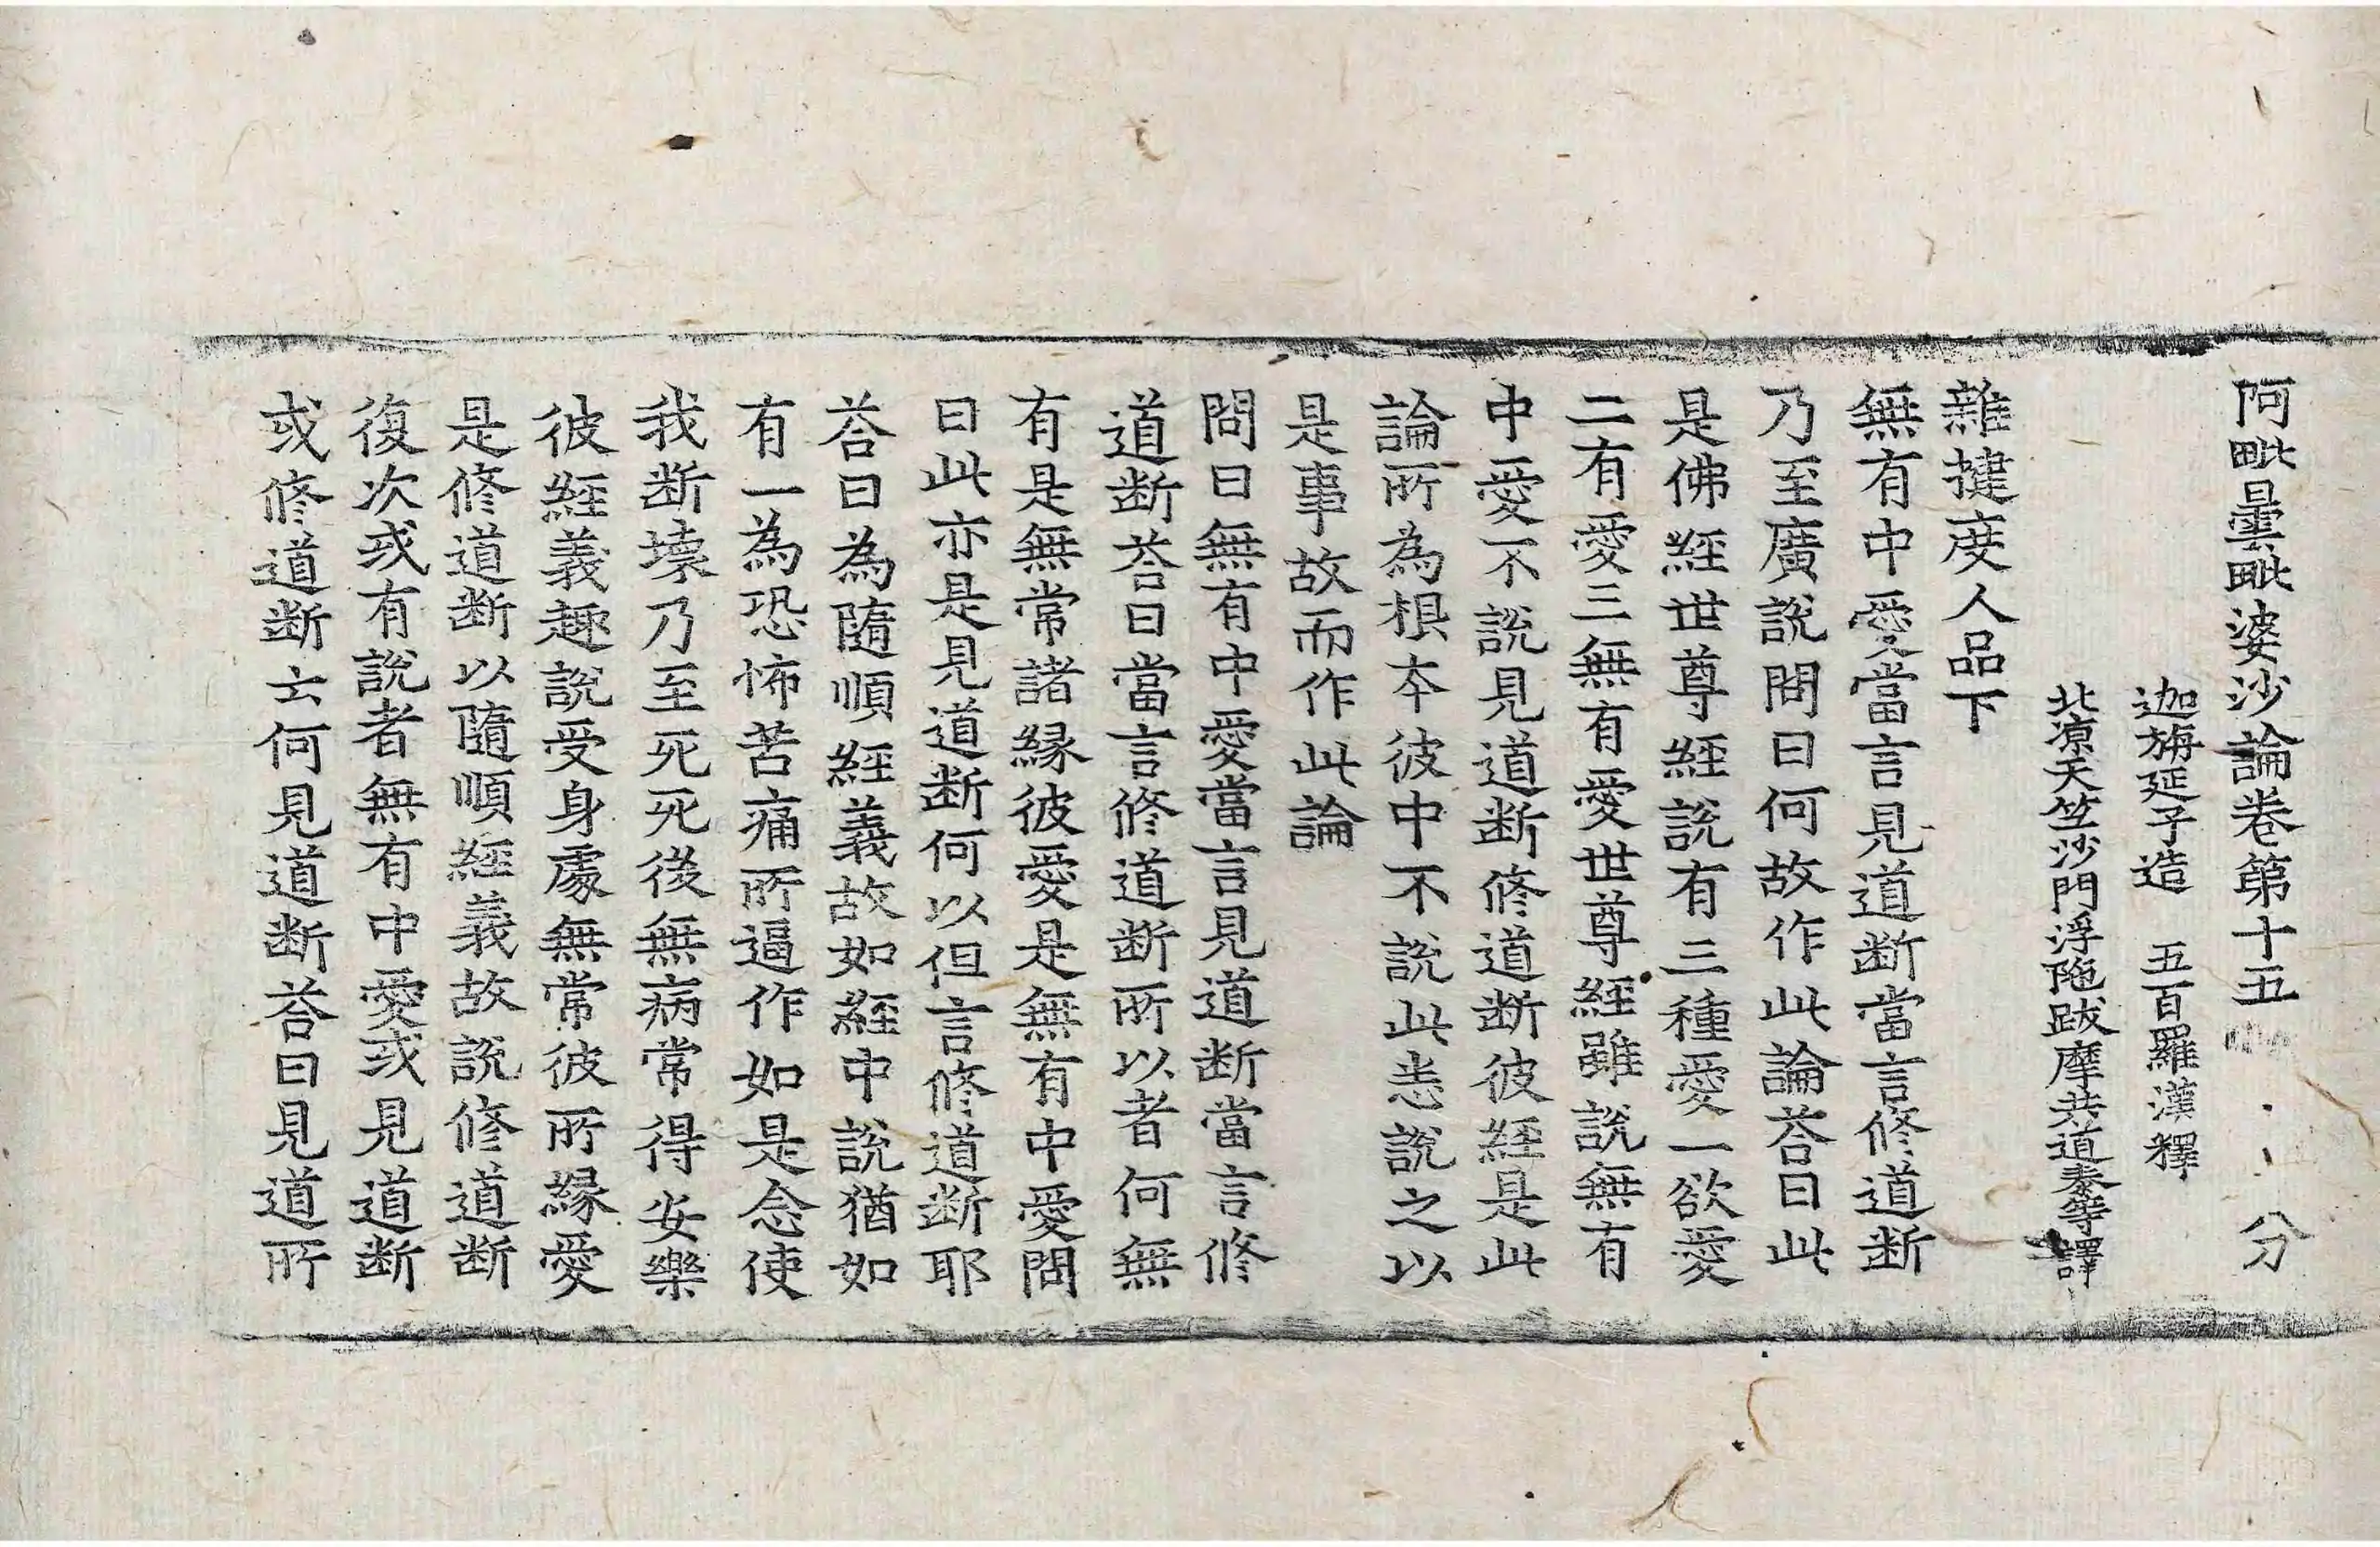 阿毗曇毗婆沙論卷第十五 分
迦旃延子造 五百羅漢釋
北涼天竺沙門浮陁跋摩共道泰等譯
雜揵度人品下
無有中愛當言見道断當言修道断
乃至廣說問曰何故作此論荅曰此
是佛經世尊經說有三種愛一欲愛
二有愛三無有愛世尊經雖說無有
中愛不說見道断修道断彼經是此
論所為根本彼中不說此悉說之以
是事故而作此論
問曰無有中愛當言見道断當言修
道断荅曰當言修道断所以者何無
有是無常諸縁彼愛是無有中愛問
曰此亦是見道断何以但言修道断耶
荅曰為隨順經義故如經中說猶如
有一為恐怖苦痛所逼作如是念使
我断壞乃至死死後無病常得安樂
彼經義趣說受身處無常彼所縁愛
是修道断以隨順經義故說修道断
復次或有說者無有中愛或見道断
或修道断云何見道断荅曰見道所